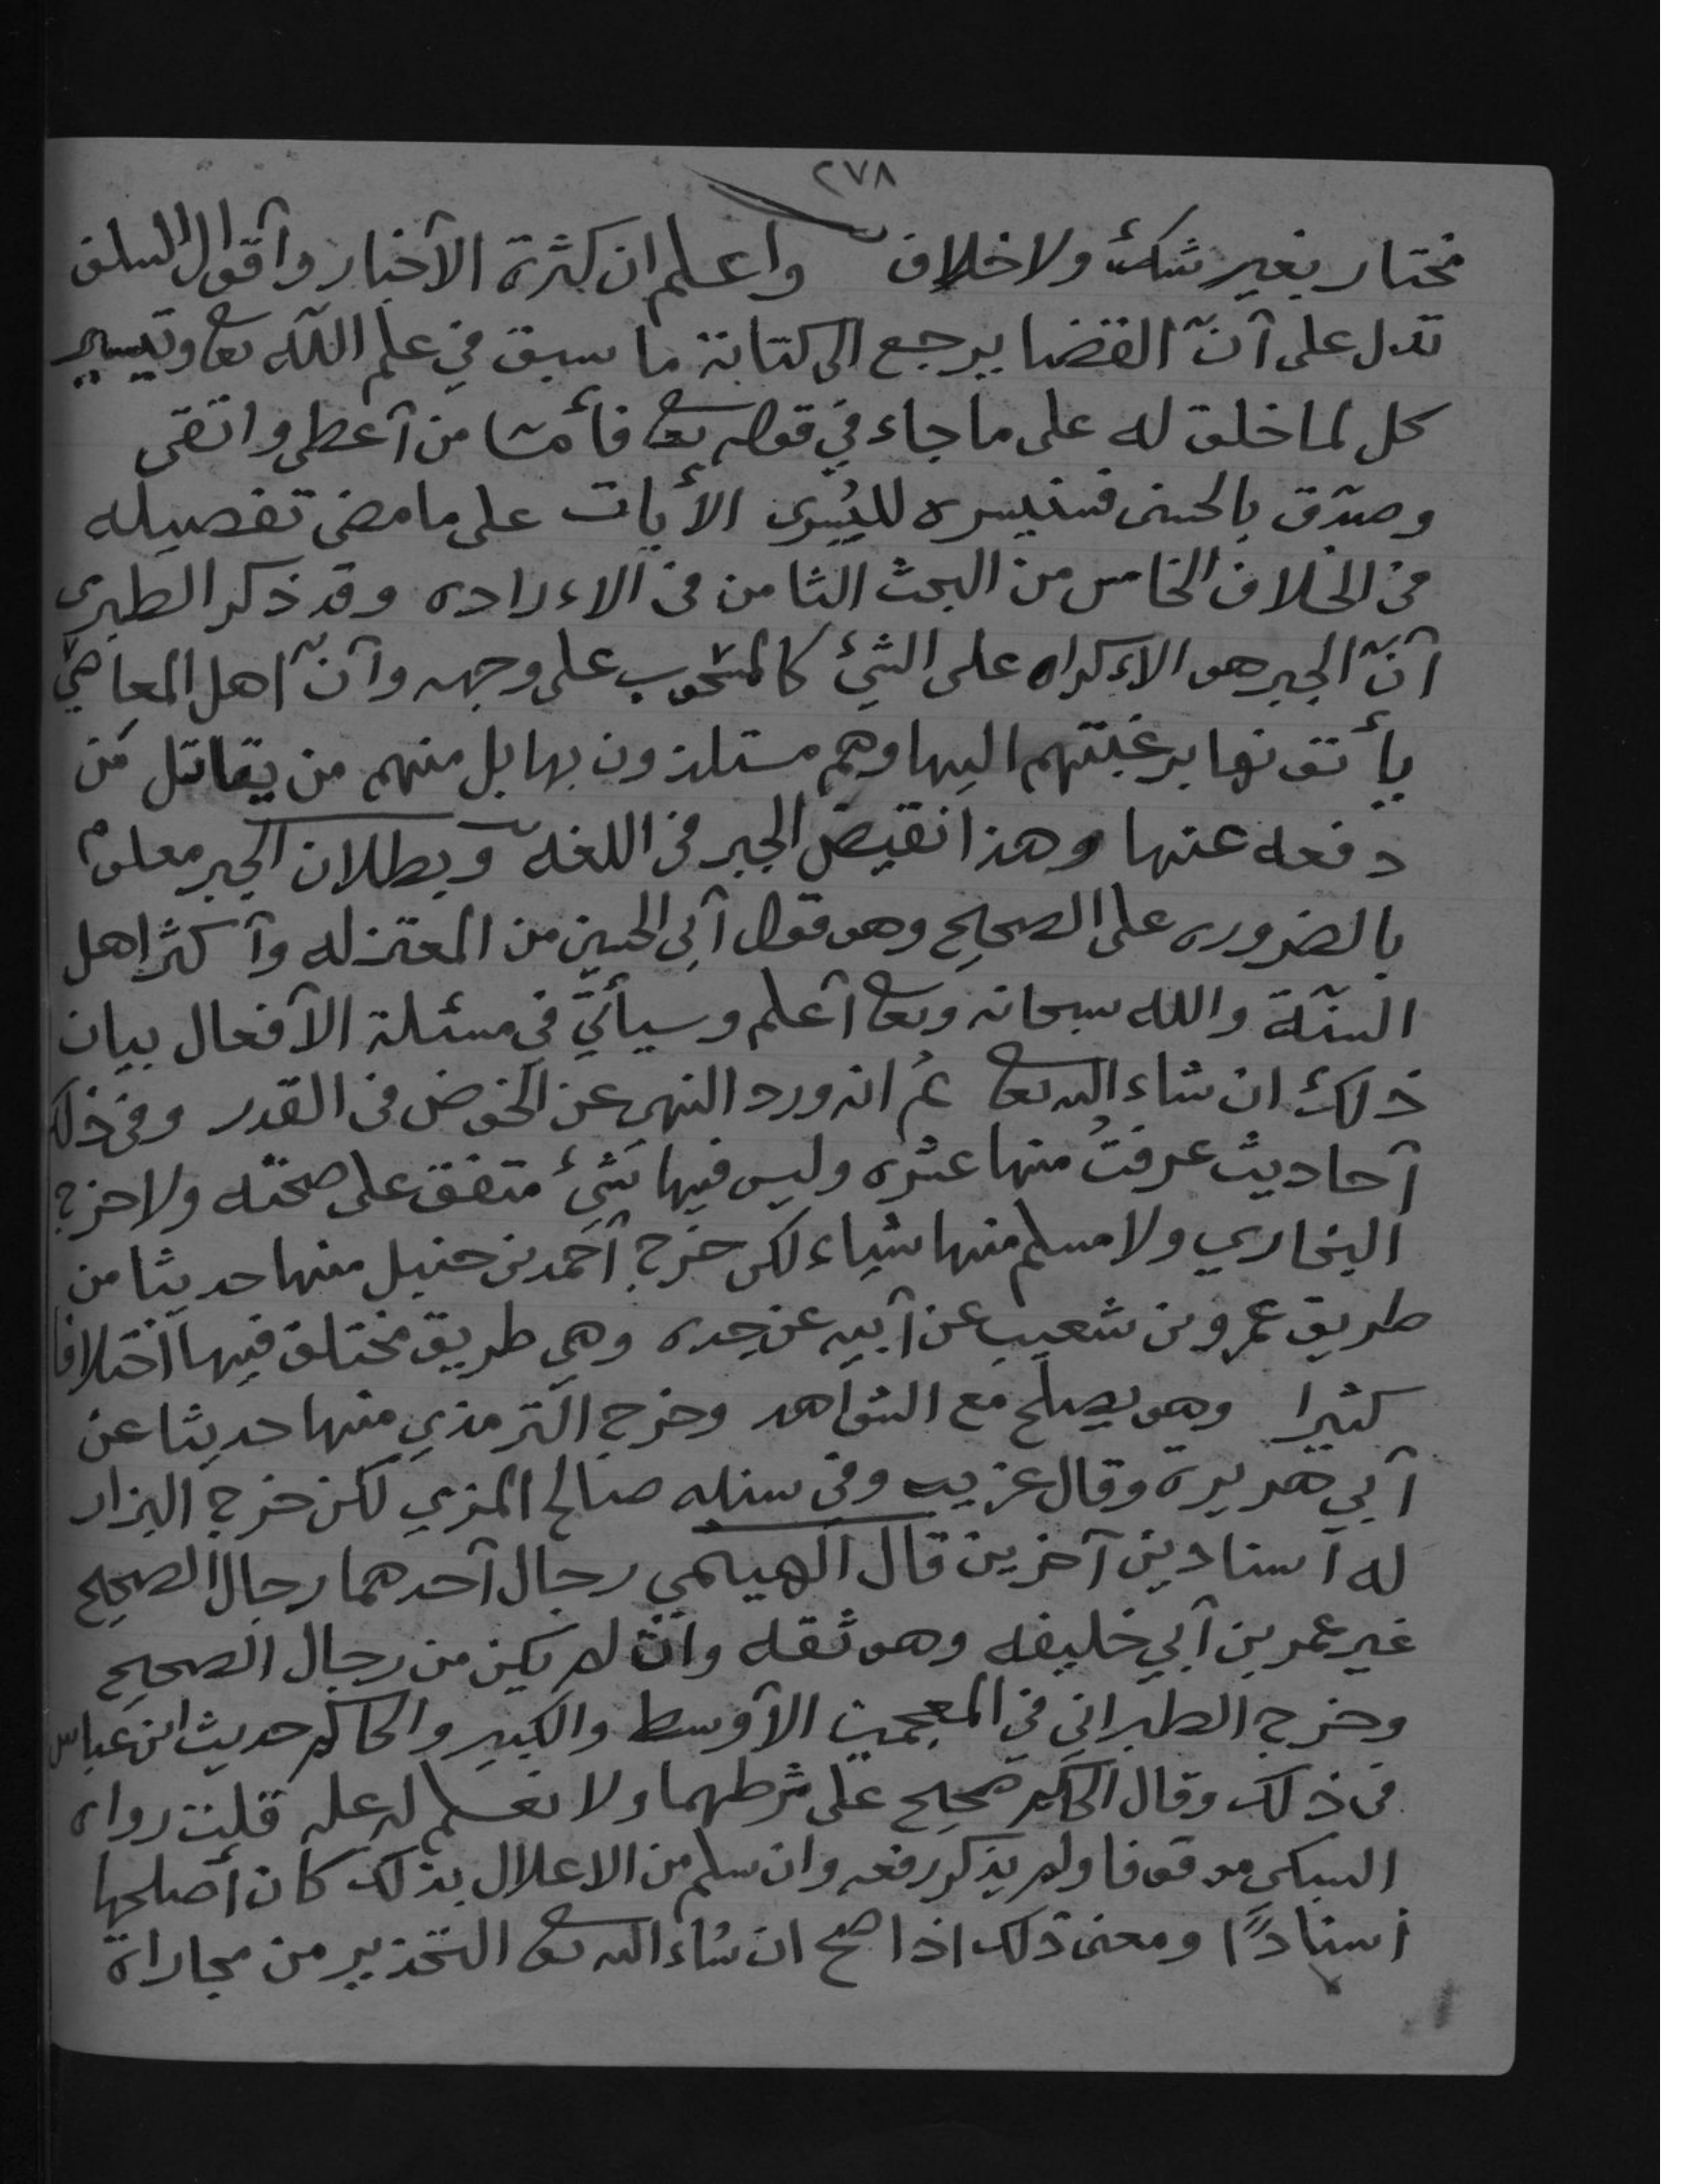 ٢٧٨
مختار بغير شكّ ولا خلاف واعلم ان كثرة الآخبار وآقوال السلف
تدل على آنّ القضا يرجع الى كتابة ما سبق في علم اللّه تعا وتيسير
كل لما خلق له على ما جاء في قوله تعا فأمّا من آعطى واتقى
وصدّق بالحسنى فسنيسره لليُسرى الأيات على ما مضى تفصيله
فى الخلاف الخامس من البحث الثامن فى الاءراده وقد ذكر الطبرى
آنّ الجبر هو الاءكراه على الشئ كالمسحوب على وجهه وآنّ اهل المعاصي
يأتونها برغبتهم اليها وهم مستلذون بها بل منهم من يقاتل من
دفعه عنها وهذا نقيض الجبر فى اللغه وبطلان الجبر معلوم
بالضروره على الصحيح وهو قول آبى الحسين من المعتزله وآكثر اهل
السنّة والله سبحانه وتعا آعلم وسيأتي في مسئلة الآفعال بيان
ذلك ان شاء الله تعا ثم انه ورد النهى عن الخوض فى القدر وفى ذلك
آحاديث عرفتُ منها عشره وليس فيها شئ متفق على صحته ولا خرج
البخاري ولا مسلم منها شياء لكن خرج آحمد بن حنبل منها حديثا من
طريق عمرو بن شعيب عن آبيه عن جده وهي طريق مختلف فيها آختلافا
كثيرا وهو يصلح مع الشواهد وخرج الترمذي منها حديثا عن
آبي هريرة وقال غريب وفي سنده صالح المزي لكن خرج البزار
له آسنادين آخرين قال الهيثمي رجال آحدهما رجال الصحيح
غير عمر بن آبي خليفه وهو ثقه وان لم يكن من رجال الصحيح
وخرج الطبراني في المعجمين الآوسط والكبير والحاكم حديث ابن عباس
فى ذلك وقال الحاكم صحيح على شرطهما ولا نعلم له عله قلت رواه
السبكي موقوفا ولم يذكر رفعه وان سلم من الاعلال بذلك كان أصلحها
أسنادًا ومعنى ذلك اذا صح ان شاء الله تعا التحذير من مجاراة